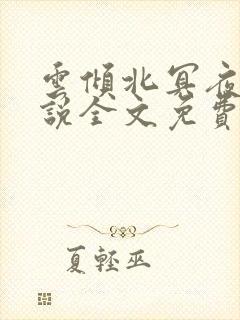 雲傾北冥夜
說全文免費
夏輕巫